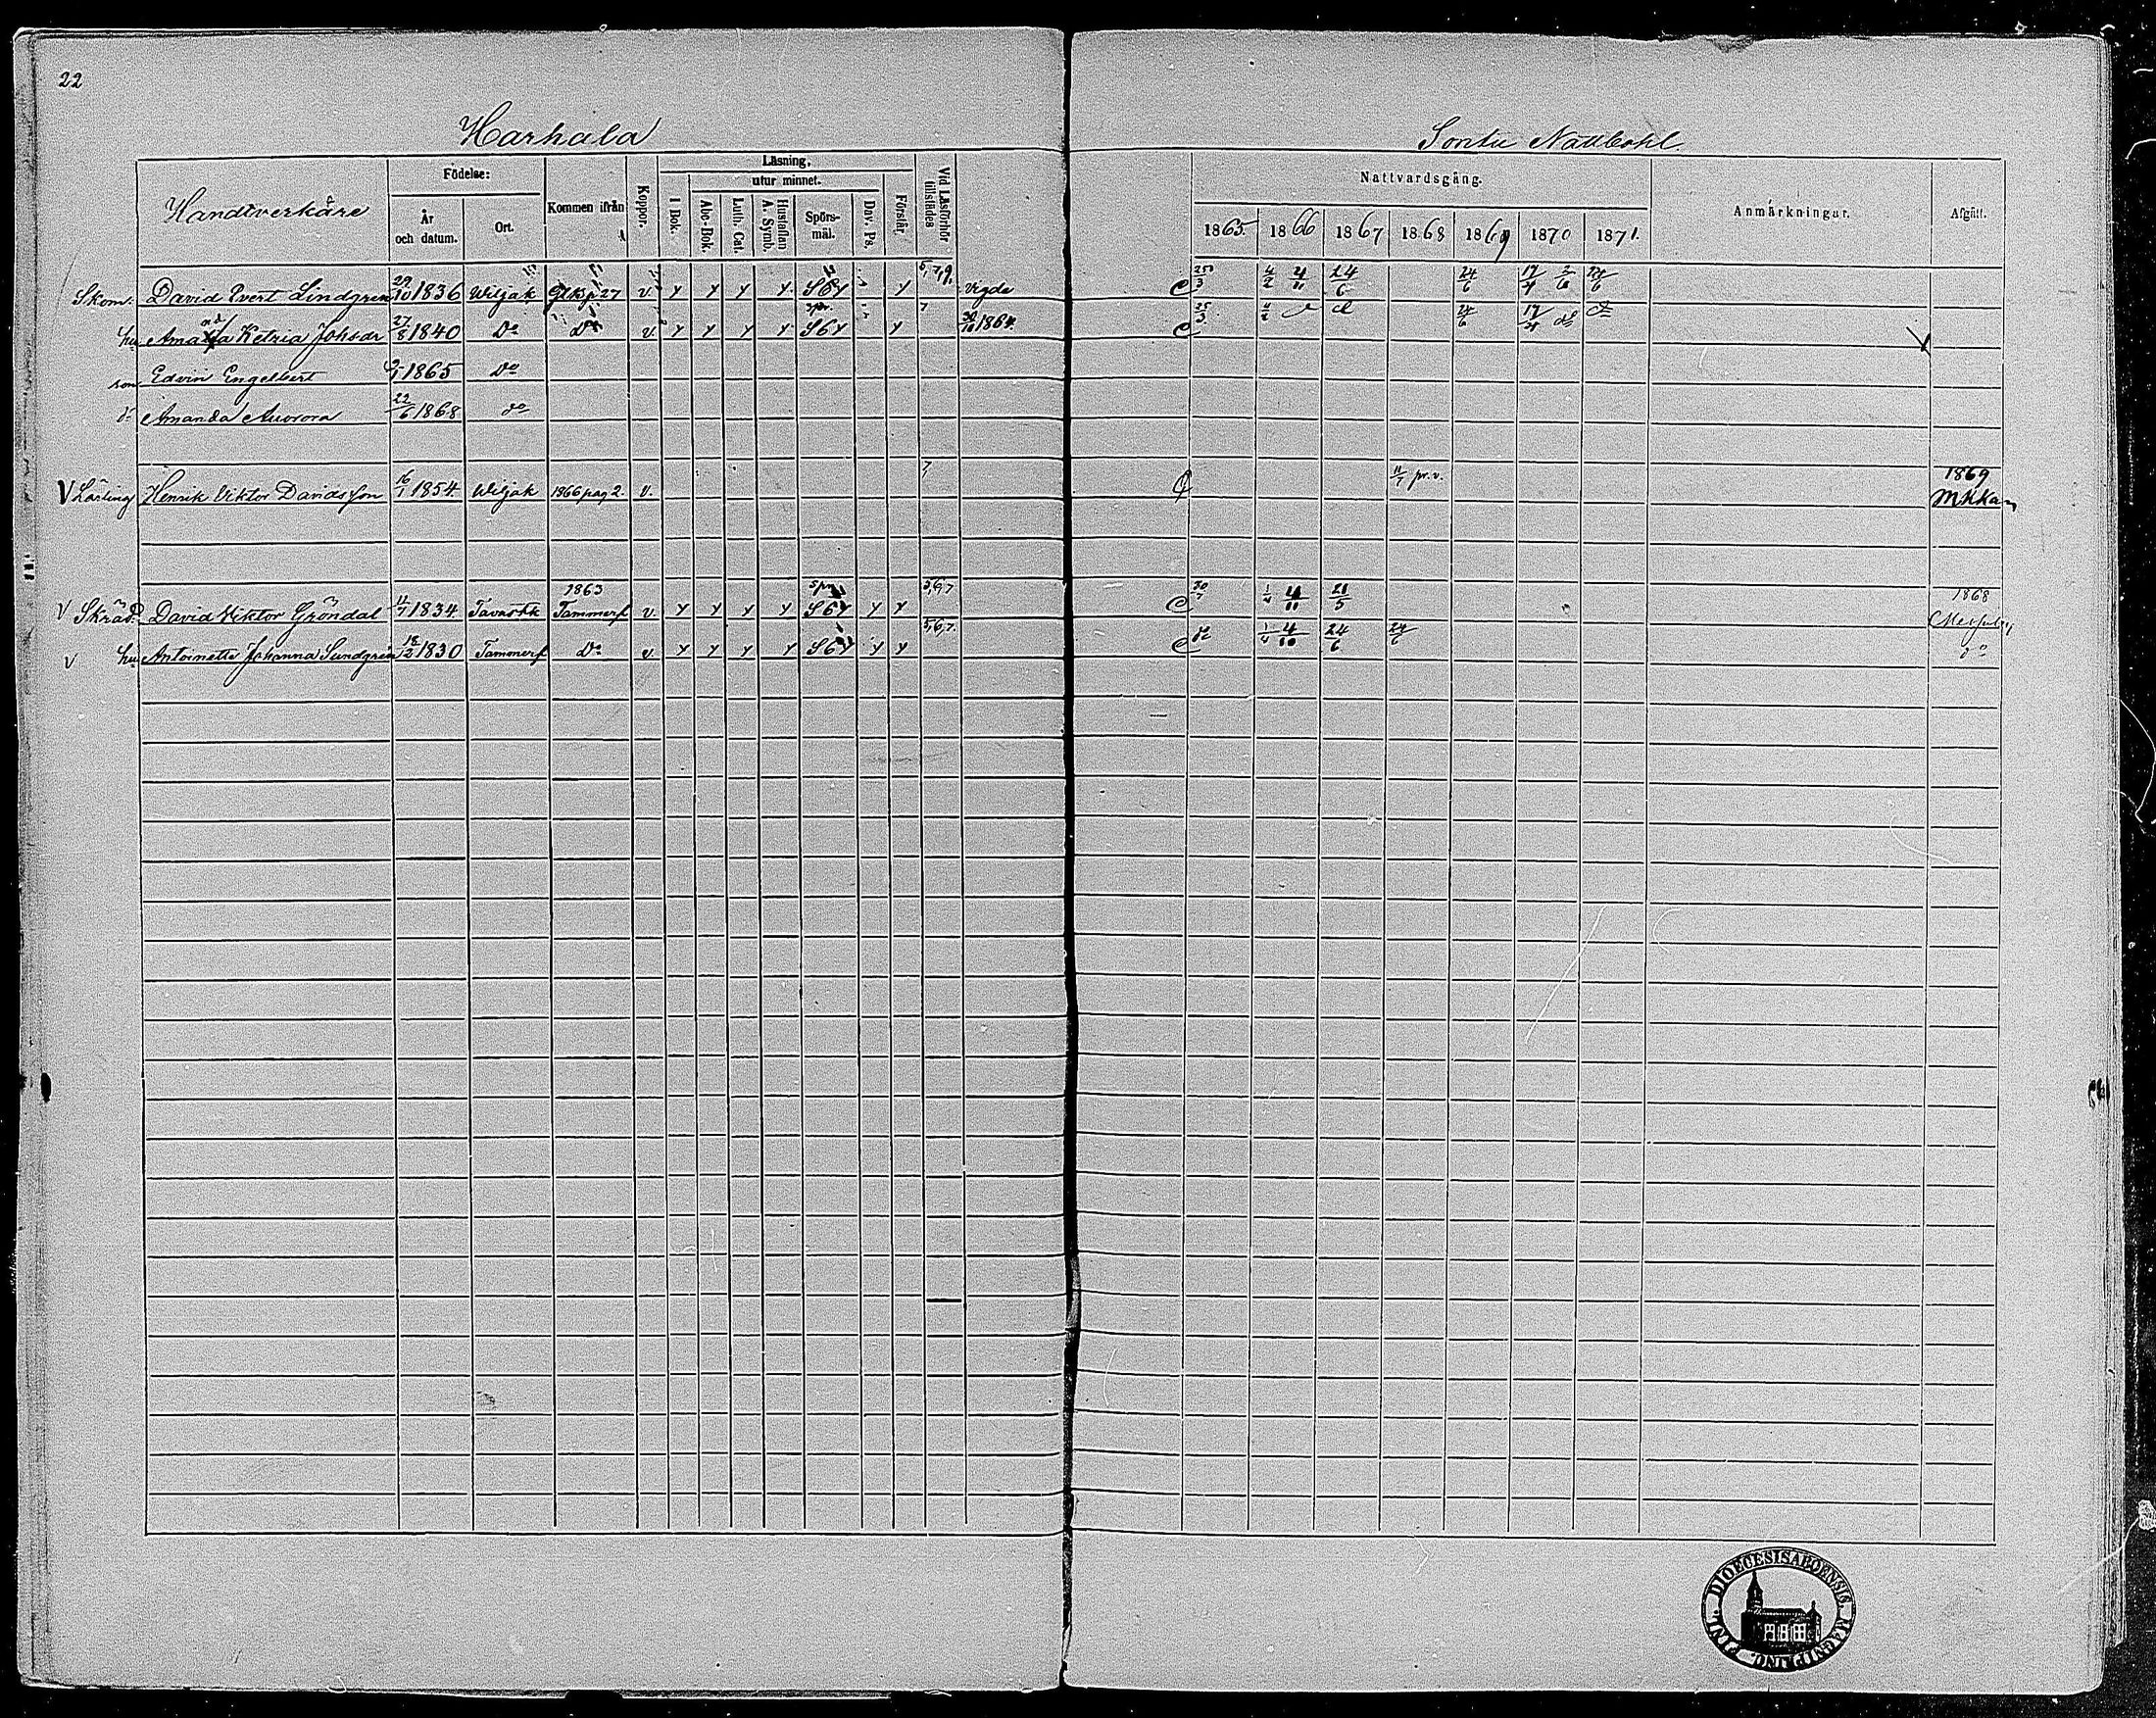 22
Harhala
Sontu Nattbohl.
Handtverkäre
Födelse:
År och datum.
Ort.
Kommen ifrån
Koppor.
Läsning,
I Bok.
utur minnet.
Abc-Bok.
Luth. Cat.
Hustaflan A. Symb.
Spörs-mål.
Dav. Ps.
Förstår.
Vid Läsförhör tillstädes
Nattvardsgång.
1865 1866 1867 1868 1869 1870 1871.
Anmärkningar.
Afgått.
Skom. David Evert Lindgren 29/10 1836 Wiljak Gl Ksp 27 v. 5,7,9. Vigde 25/3 4/2 4/11 24/6 24/6 17/4 2/6 24/6
hu Amanda Ketria Johsdr 27/8 1840 Do Do v. 7 30/10 1864. 25/3 4/2 24/6 17/4
son Edvin Engelbert 1865 Do
dr Amanda Aurora 22/6 1868 do
V Lärling Henrik Viktor Davidsson 16/1 1854 Wiljak 1866 pag 2. v. 7 11/7 pr. v. 1869 MKKan
V Skräd. David Viktor Gröndal 11/7 1834 Tavasthk 1863 Tammerf v. 5,6,7 30/7 1/4 4/11 21/5 1868
V hu Antoinette Johanna Sundgren 18/12 1830 Tammerf Do v. 5,6,7. do 1/4 4/10 24/6 24/6 do
FINL. DIOECESIS ABOENSIS MAGNI PRINC.